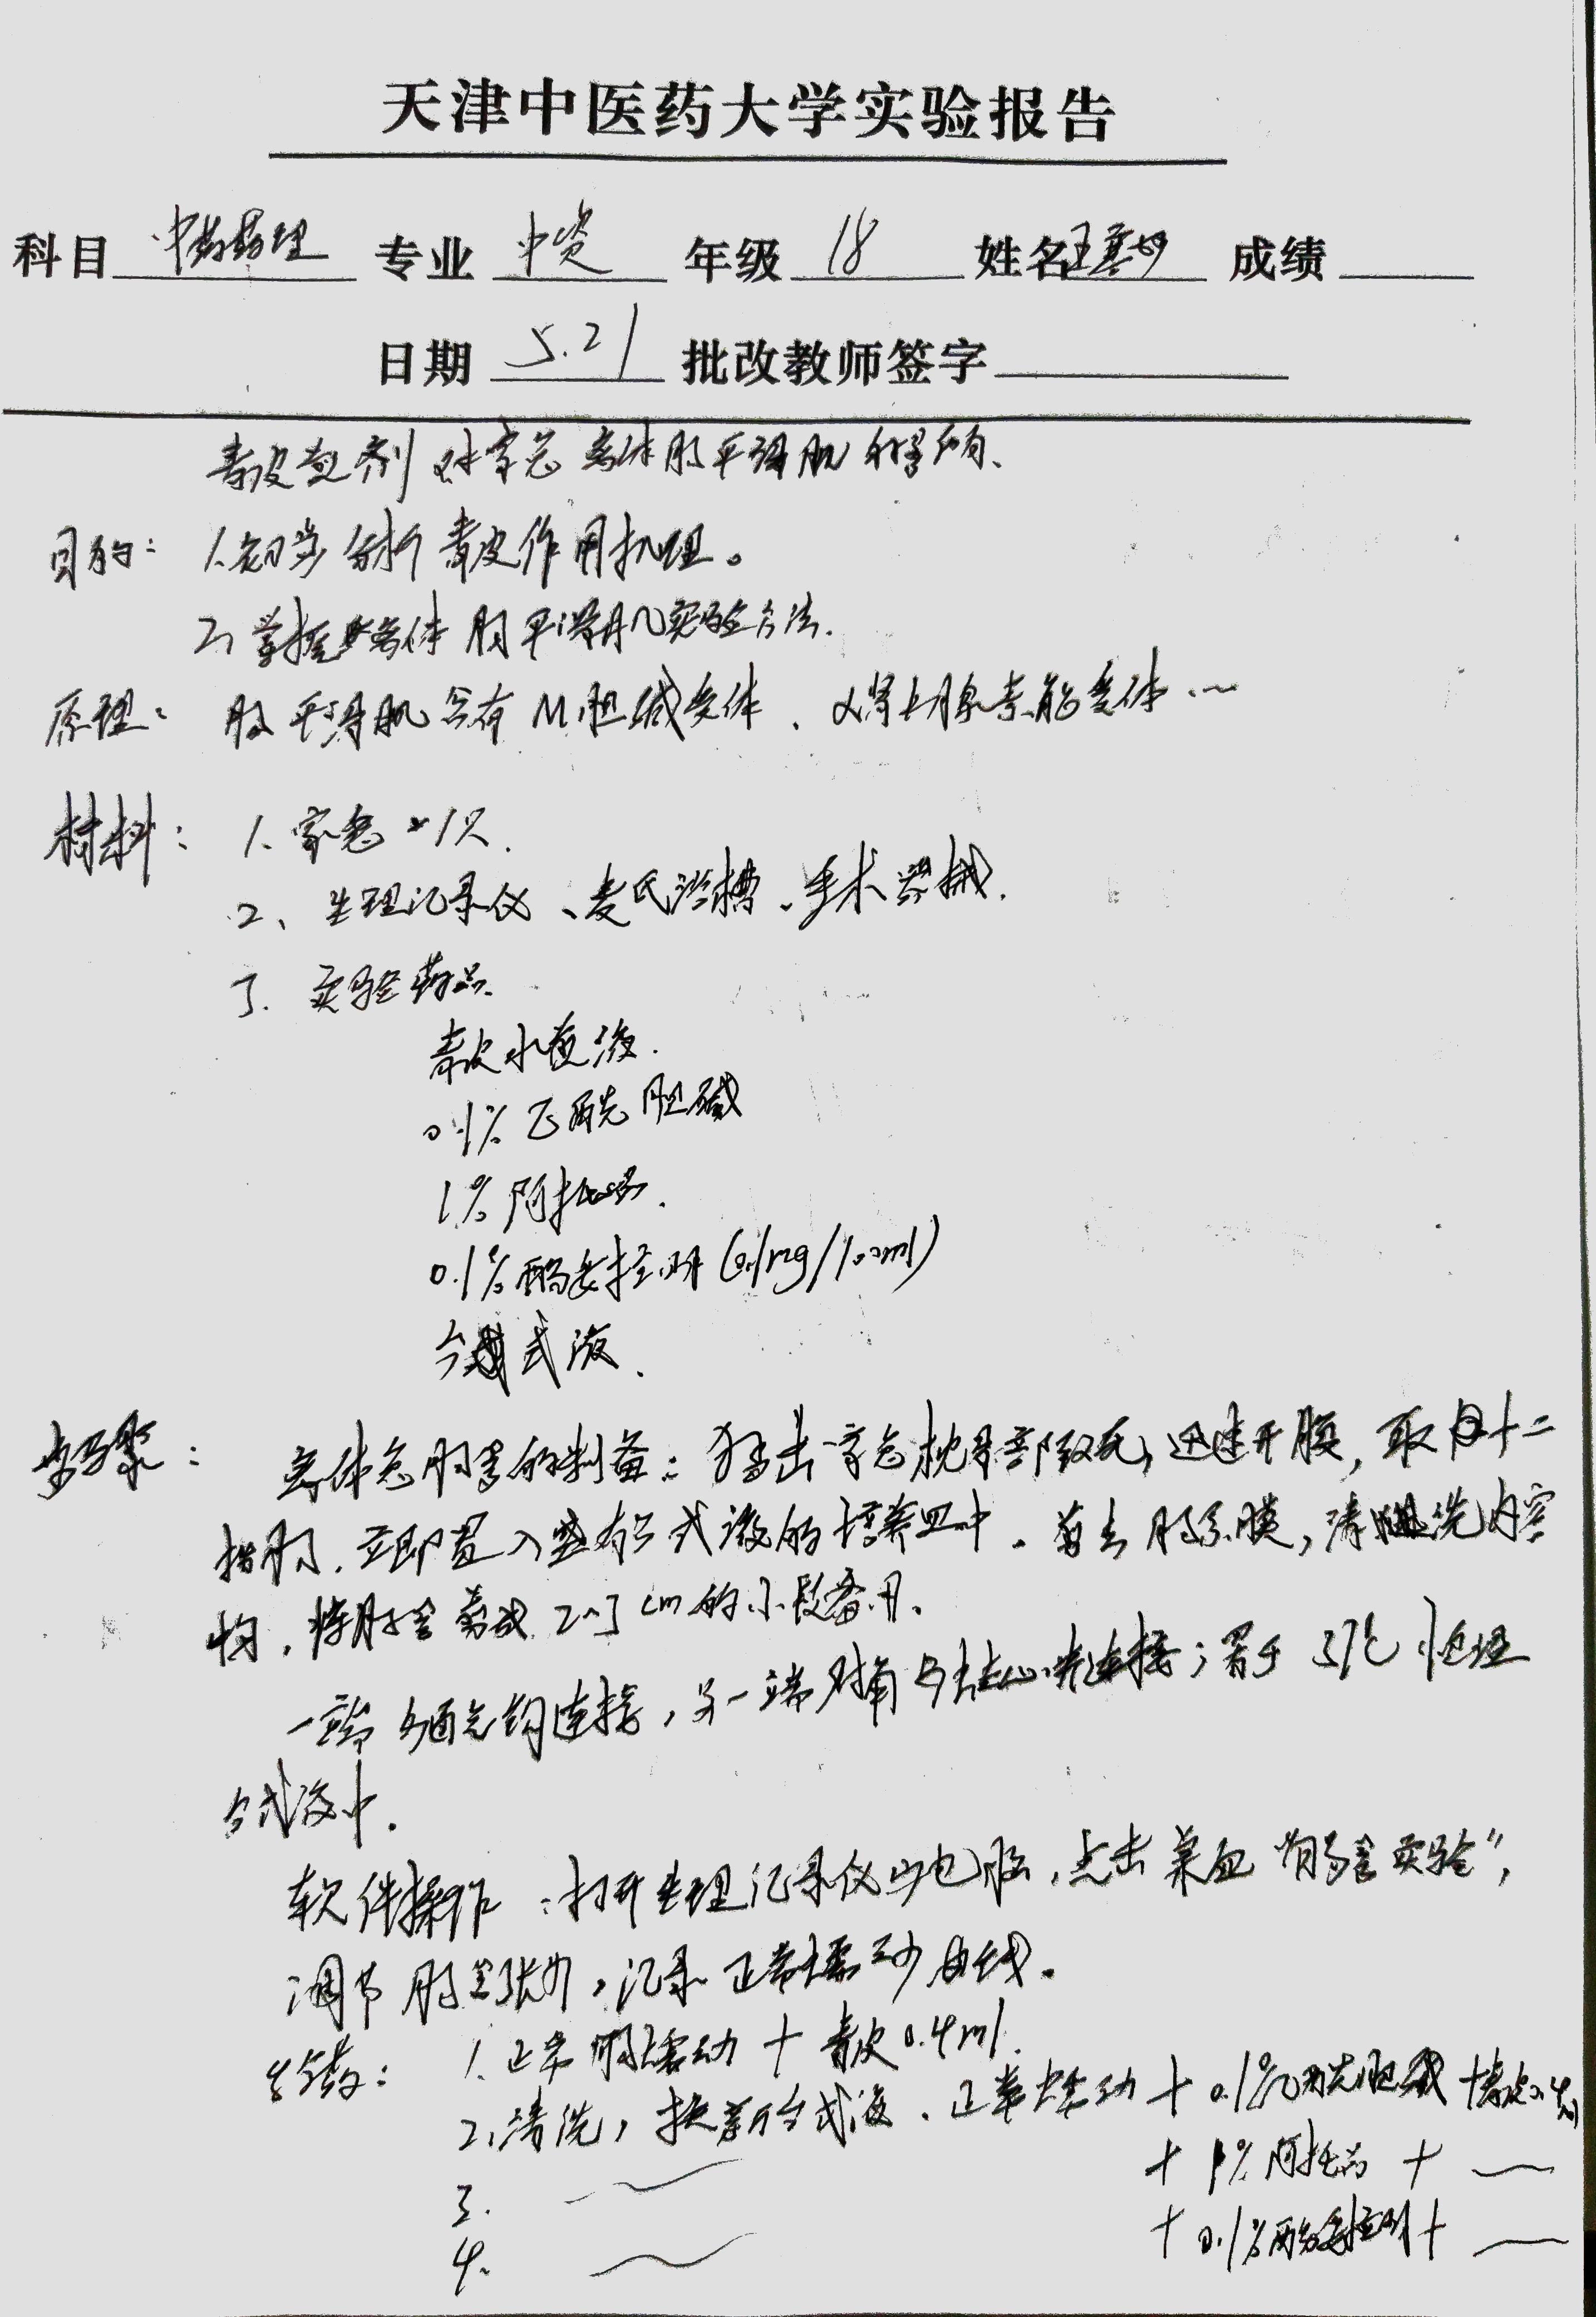 天津中医药大学实验报告
科目 中药药理 专业 中资 年级 18 姓名 王 成绩
日期 5.21 批改教师签字
青皮煎剂对家兔离体肠平滑肌的影响.
目的: 1.初步分析青皮作用机理。
2.掌握离体肠平滑肌实验方法.
原理: 肠平滑肌含有M胆碱受体、α肾上腺素能受体…
材料: 1.家兔×1只.
2、生理记录仪、麦氏浴槽、手术器械.
3. 实验药品.
青皮水煎液.
0.1%乙酰胆碱
1%阿托品.
0.1%酚妥拉明(0.1mg/100ml)
台式液.
步骤: 离体兔肠管的制备:猛击家兔枕骨部致死,迅速开腹,取出十二
指肠.立即置入盛有台式液的培养皿中.剪去肠系膜,清洗内容
物,将肠管剪成2~3cm的小段备用.
一端与通气钩连接,另一端对角与连接;置于37℃恒温
台式液中.
软件操作:打开生理记录仪与电脑,点击菜单"肠管实验",
调节肠管张力,记录正常蠕动曲线。
给药: 1.正常肠蠕动+青皮0.4ml.
2.清洗,换新台式液.正常蠕动+0.1%乙酰胆碱+青皮0.4ml
3. +1%阿托品+
4. +0.1%酚妥拉明+